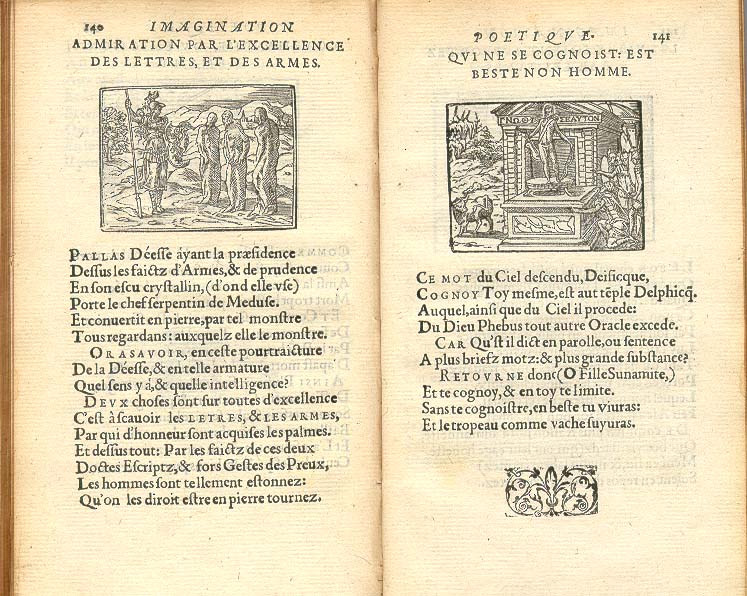 140 IMAGINATION
ADMIRATION PAR L'EXCELLENCE
DES LETTRES, ET DES ARMES.
PALLAS Déesse áyant la præsidence
Dessus les faictz d'Armes, & de prudence
En son escu crystallin, (d'ond elle vse)
Porte le chef serpentin de Meduse.
Et conuertit en pierre, par tel monstre
Tous regardans: auxquelz elle le monstre.
OR A SAVOIR, en ceste pourtraicture
De la Déesse, & en telle armature
Quel sens y á, & quelle intelligence?
DEVX choses sont sur toutes d'excellence
C'est à scauoir les LETRES, & LES ARMES,
Par qui d'honneur sont acquises les palmes.
Et dessus tout: Par les faictz de ces deux
Doctes Escriptz, & fors Gestes des Preux,
Les hommes sont tellement estonnez:
Qu'on les diroit estre en pierre tournez.
POETIQVE. 141
QVI NE SE COGNOIST: EST
BESTE NON HOMME.
ΓΝΩΘΙ ΣΕΑΥΤΟΝ
CE MOT du Ciel descendu, Deificque,
COGNOY Toy mesme, est au tẽple Delphicq.
Auquel, ainsi que du Ciel il procede:
Du Dieu Phebus tout autre Oracle excede.
CAR Qu'st il dict en parolle, ou sentence
A plus briefz motz: & plus grande substance?
RETOVRNE donc (O Fille Sunamite,)
Et te cognoy, & en toy te limite.
Sans te cognoistre, en beste tu viuras:
Et le tropeau comme vache suyuras.